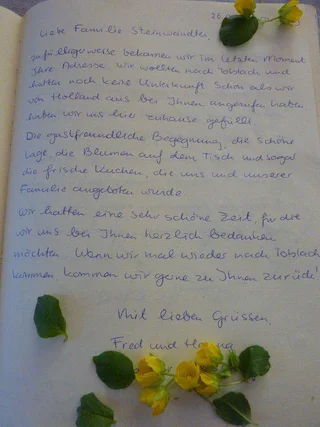 26
Liebe Familie Steinwandter,
zufälligerweise bekamen wir im letzten Moment
Ihre Adresse. Wir wollten nach Toblach und
hatten noch keine Unterkunft. Schon als wir
von Holland aus bei Ihnen angerufen haben
haben wir uns hier zuhause gefühlt.
Die gastfreundliche Begegnung, die schöne
Lage, die Blumen auf dem Tisch und sogar
die frische Kuchen, die uns und unserer
Familie angeboten wurde.
Wir hatten eine sehr schöne Zeit, für die
wir uns bei Ihnen herzlich bedanken
möchten. Wenn wir mal wieder nach Toblach
kommen, kommen wir gerne zu Ihnen zurück!
Mit lieben Grüssen,
Fred und